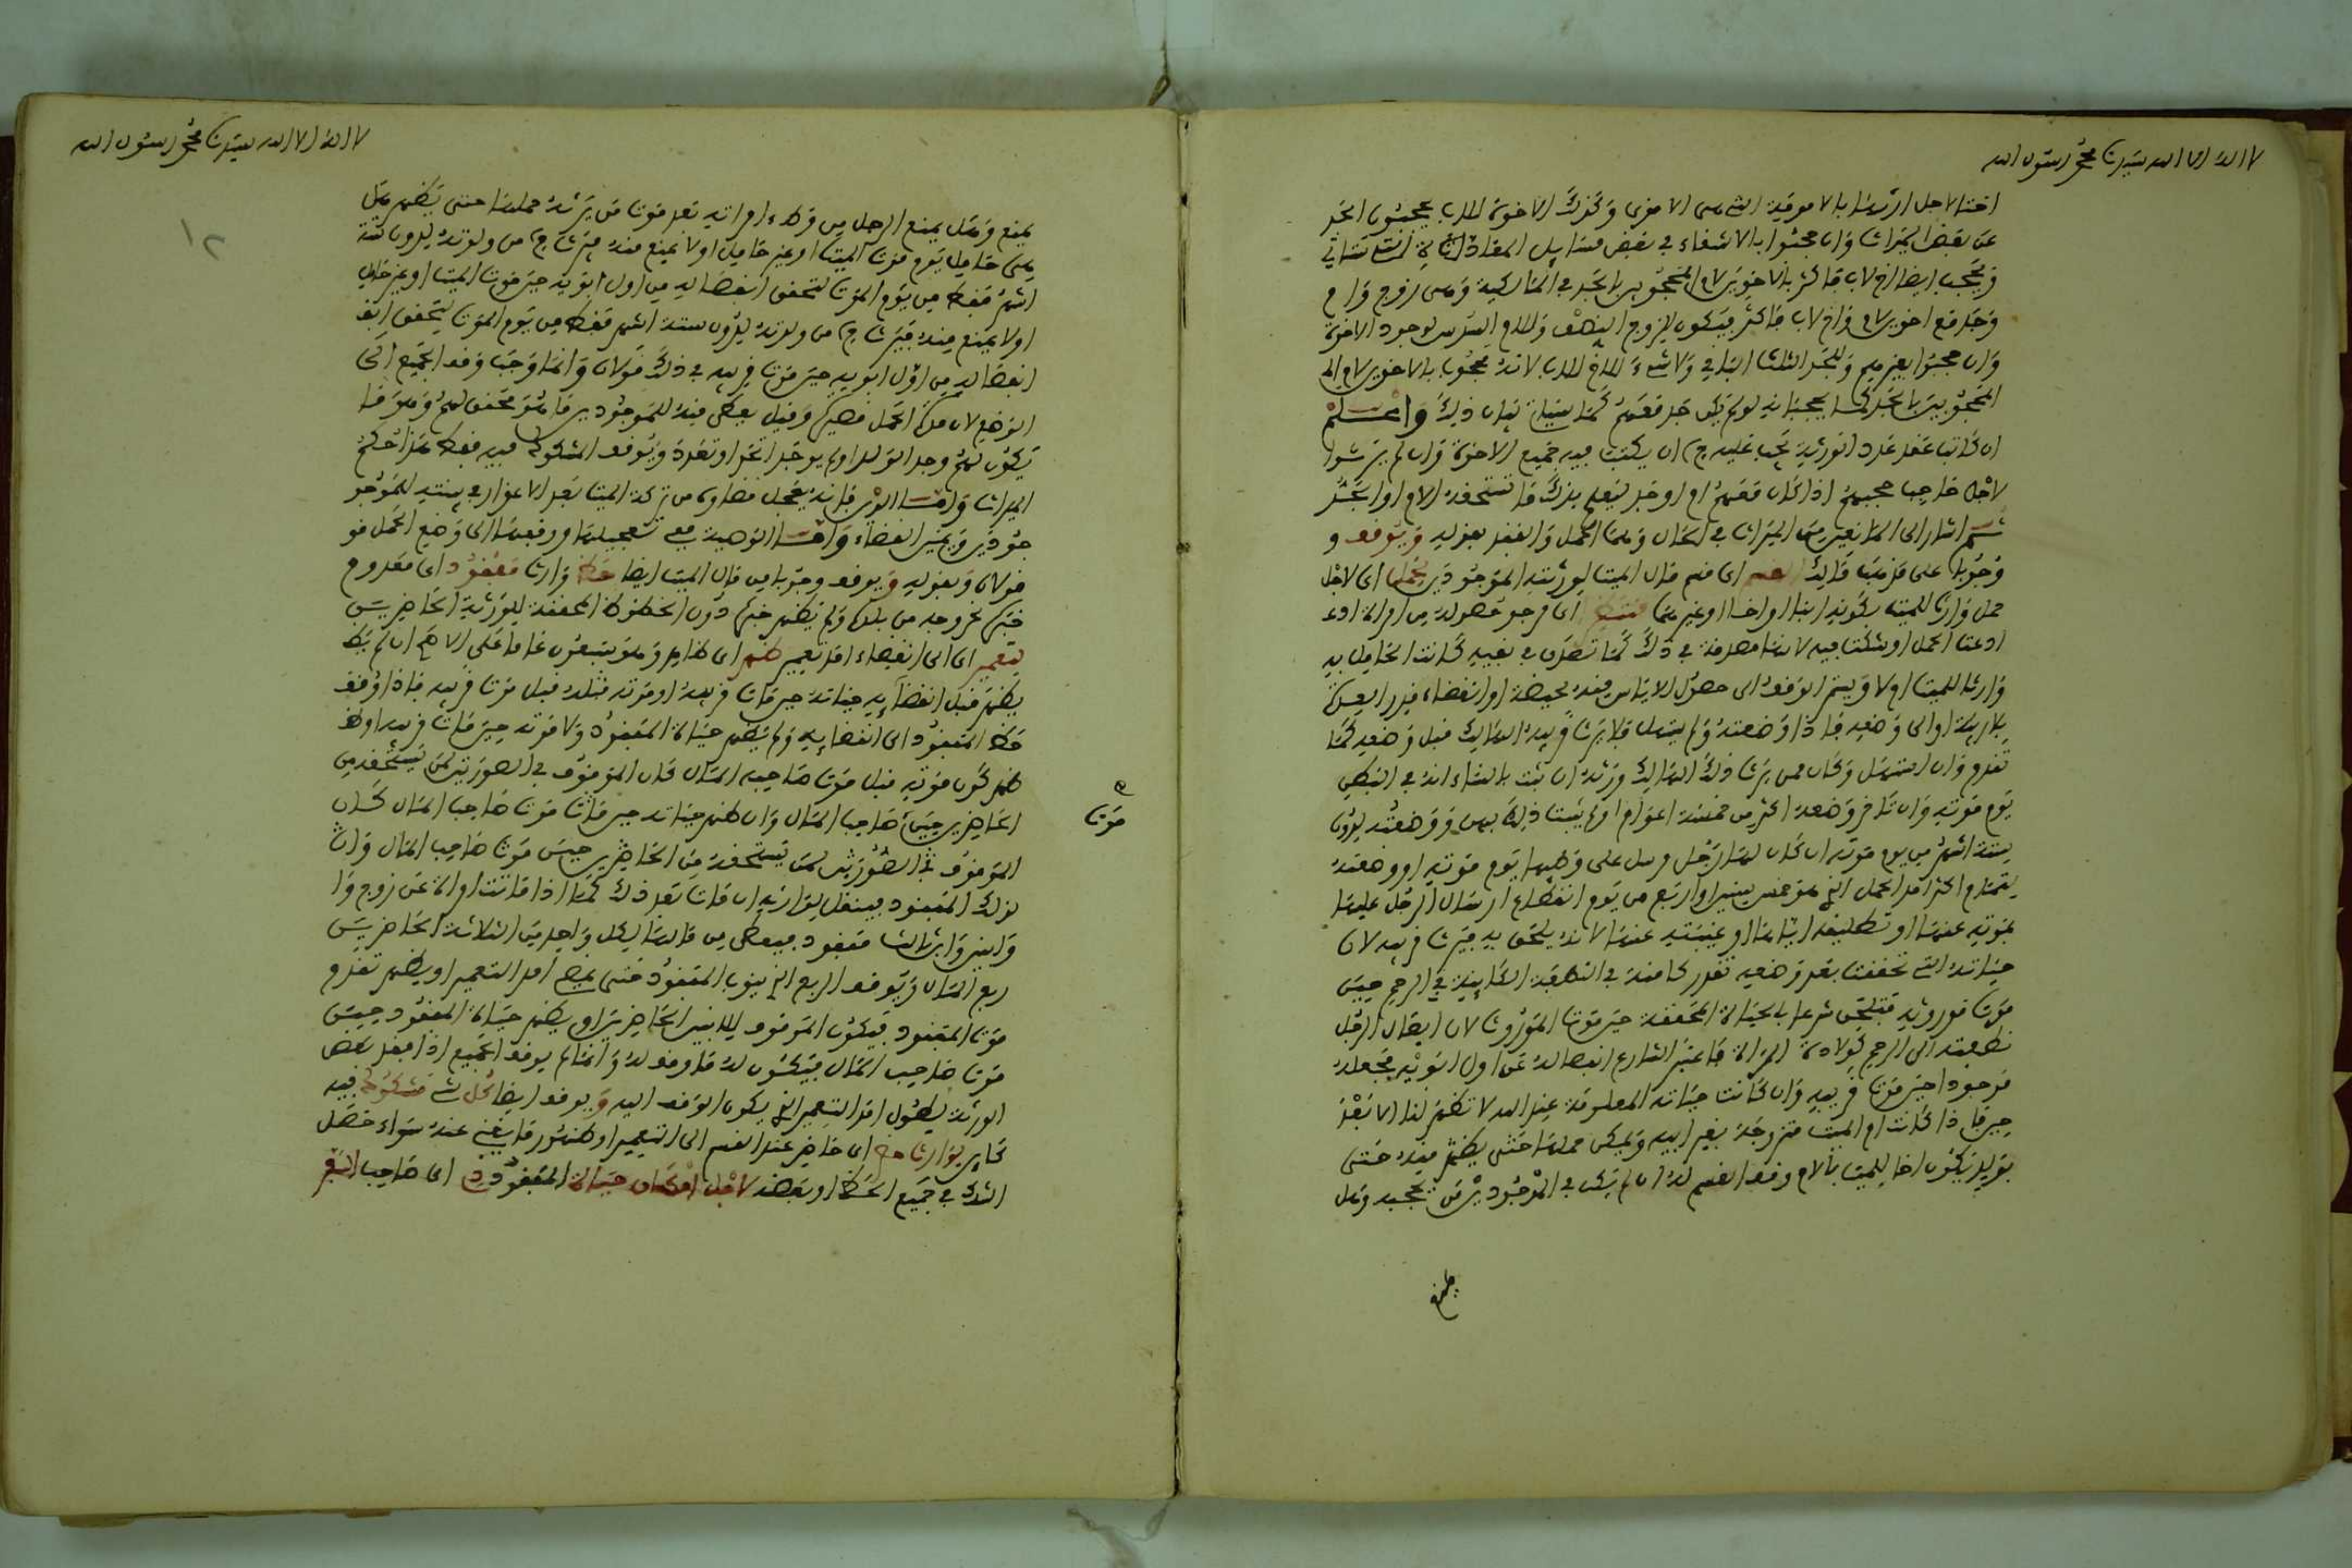 لا اله الا الله سيدنا محمد رسول الله
اختا لاجل ارثها بالامومة التي هي الاقوى وكذلك الاخوة للاب يحجبون الجد
عن بعض الميراث وان حجبوا بالاشقاء في بعض مسايل المعادة
ويحجب ايضا الاخ لاب فاكثر بالاخوين لام المحجوبين بالجد في المالكية وهي زوج وام
وجد مع اخوين لام واخ لاب فاكثر فيكون للزوج النصف وللام السدس لوجود الاخوة
وان حجبوا بغيرهم وللجد الثلث الباقي ولا شيء للاخ للاب لانه محجوب بالاخوين لام
المحجوبين بالجد كما يحجبانه لو لم يكن جد معهم كما سياتي بيان ذلك واعلم
ان كاتب عقد عدد الورثة يجب عليه ان يكتب فيه جميع الاخوة وان لم يرثوا
لاجل حاجب حجبهم اذا كان معهم ام او جد ليعلم بذلك ما تستحقه الام او الجد
ثم اشار الى المانعين من الميراث في الحال وهما الحمل والفقد بقوله ويوقف و
وجوبا على مذهب مالك القسم اي قسم مال الميت لورثته الموجودين لحمل اي لاجل
حمل وارث للميت بكونه ابنا او اخا او غيرهما اي مرجو حصوله من امراة
ادعت الحمل او شكت فيه لانها مصدقة في ذلك كما تصدق في نفيه كانت الحامل به
وارثة للميت او لا ويستمر الوقف الى حصول الاياس منه بحيضة او انقضاء قدر العدة
بلا ريبة او الى وضعه فاذا وضعته ولم يستهل فلا يرث قريبه الهالك قبل وضعه كما
تقدم وان استهل وكان ممن يرث ذلك الهالك ورثه ان ثبت بالنساء انه في البطن
يوم موته وان تاخر وضعه اكثر من خمسة اعوام او لم يثبت ذلك بهن ووضعته لدون
ستة اشهر من يوم موته ان كان لها رجل مرسل على وطيها يوم موته او وضعته
لتمام اكثر امد الحمل الذي هو خمس سنين او اربع من يوم انقطاع ارسال الرجل عليها
بموته عنها او تطليقه اياها او غيبته عنها لانه يلحق به فيرث قريبه لان
حياته التي تحققت بعد وضعه تقدر كامنة في النطفة الكاينة في الرحم حين
موت موروثه فتلحق شرعا بالحياة المحققة حين موت الموروث لان ايصال الرجل
نطفته الى الرحم كولادة المراة فاعتبر الشارع انفصاله عن اول ابويه فجعله
موجودا حين موت قريبه وان كانت حياته المعلومة عند الله لا تظهر لنا الا بعد
حين فاذا كانت ام الميت متزوجة بغير ابيه ويمكن حملها حتى يظهر منه حتى
بولد يكون اخا للميت بالام وقف القسم لذلك ان لم يكن في الموجودين من يحجبه وهل
يمنع وهل يمنع الرجل من وطء امراته بعد موت من يرثه حملها حتى يظهر هل
هي حامل يوم موت الميت او غير حامل او لا يمنع منه ويرث من ولدته لدون ستة
اشهر فقط من يوم الموت لتحقق انفصاله من اول ابويه حين موت الميت او غير حامل
او لا يمنع منه فيرث من ولدته لدون ستة اشهر فقط من يوم الموت لتحقق
انفصاله من اول ابويه حين موت قريبه في ذلك قولان وانما وجب وقف الجميع الى
الوضع لان مدة الحمل قصيرة وقيل يعطى منه للموجودين ما هو محقق لهم وهو ما
يكون لهم وجد الولد او لم يوجد اتحد او تعدد ويوقف المشكوك فيه فقط هذا حكم
الميراث واما الدين فانه يعجل قضاوه من تركة الميت بعد الاعذار في بينته للموجو
جودين ويمين القضاء واما الوصية ففي تعجيلها ووقفها الى وضع الحمل قو
قولان وبقوله ويوقف وجوبا من مال الميت ايضا حظ وارث مفقود اي معدوم
خبره بخروجه من بلده ولم يظهر خبره دون الحظوظ المحققة للورثة الحاضرين
لتعمير اي الى انقضاء امد تعمير ظهر اي ظاهر وهو سبعون عاما على الاصح ان لم يظ
يظهر قبل انقضائه حياته حين مات قريبه او موته مثله قبل موت قريبه فاذا وقف
حظ المفقود الى انقضائه ولم يظهر حياة المفقود ولا موته حين مات قريبه او
ظهر كون موته قبل موت صاحب المال كان الموقوف في الصورتين لمن يستحقه من
الحاضرين حين موت صاحب المال وان ظهر حياته حين مات موت صاحب المال كان
الموقوف في الصورتين لمن يستحقه من الحاضرين حين موت صاحب المال وان
لذلك المفقود فينقل لوارثه ان مات بعد ذلك كما اذا ماتت امراة عن زوج وا
وابنين وابن ثالث مفقود فيعطى من مالها لكل واحد من الثلاثة الحاضرين
ربع المال ويوقف الربع الذي ينوب المفقود فمتى امد التعمير او يظهر تقدم
موت المفقود فيكون الموقوف للابنين الحاضرين او يظهر حياة المفقود حين
موت صاحب المال فيكون له ما وقف له وانما لم يوقف الجميع اذا فقد بعض
الورثة لطول امد التعمير الذي يكون الوقف اليه ويوقف ايضا كل شيء مشكوك فيه
كاين لوارث حاضر اي حاضر عند القسم الى التعمير او ظهور ما يغني عنه سواء حصل
الشك في جميع الحظ او بعضه لاجل امكان حياة المفقود اي صاحب الفقد
موت
١٢